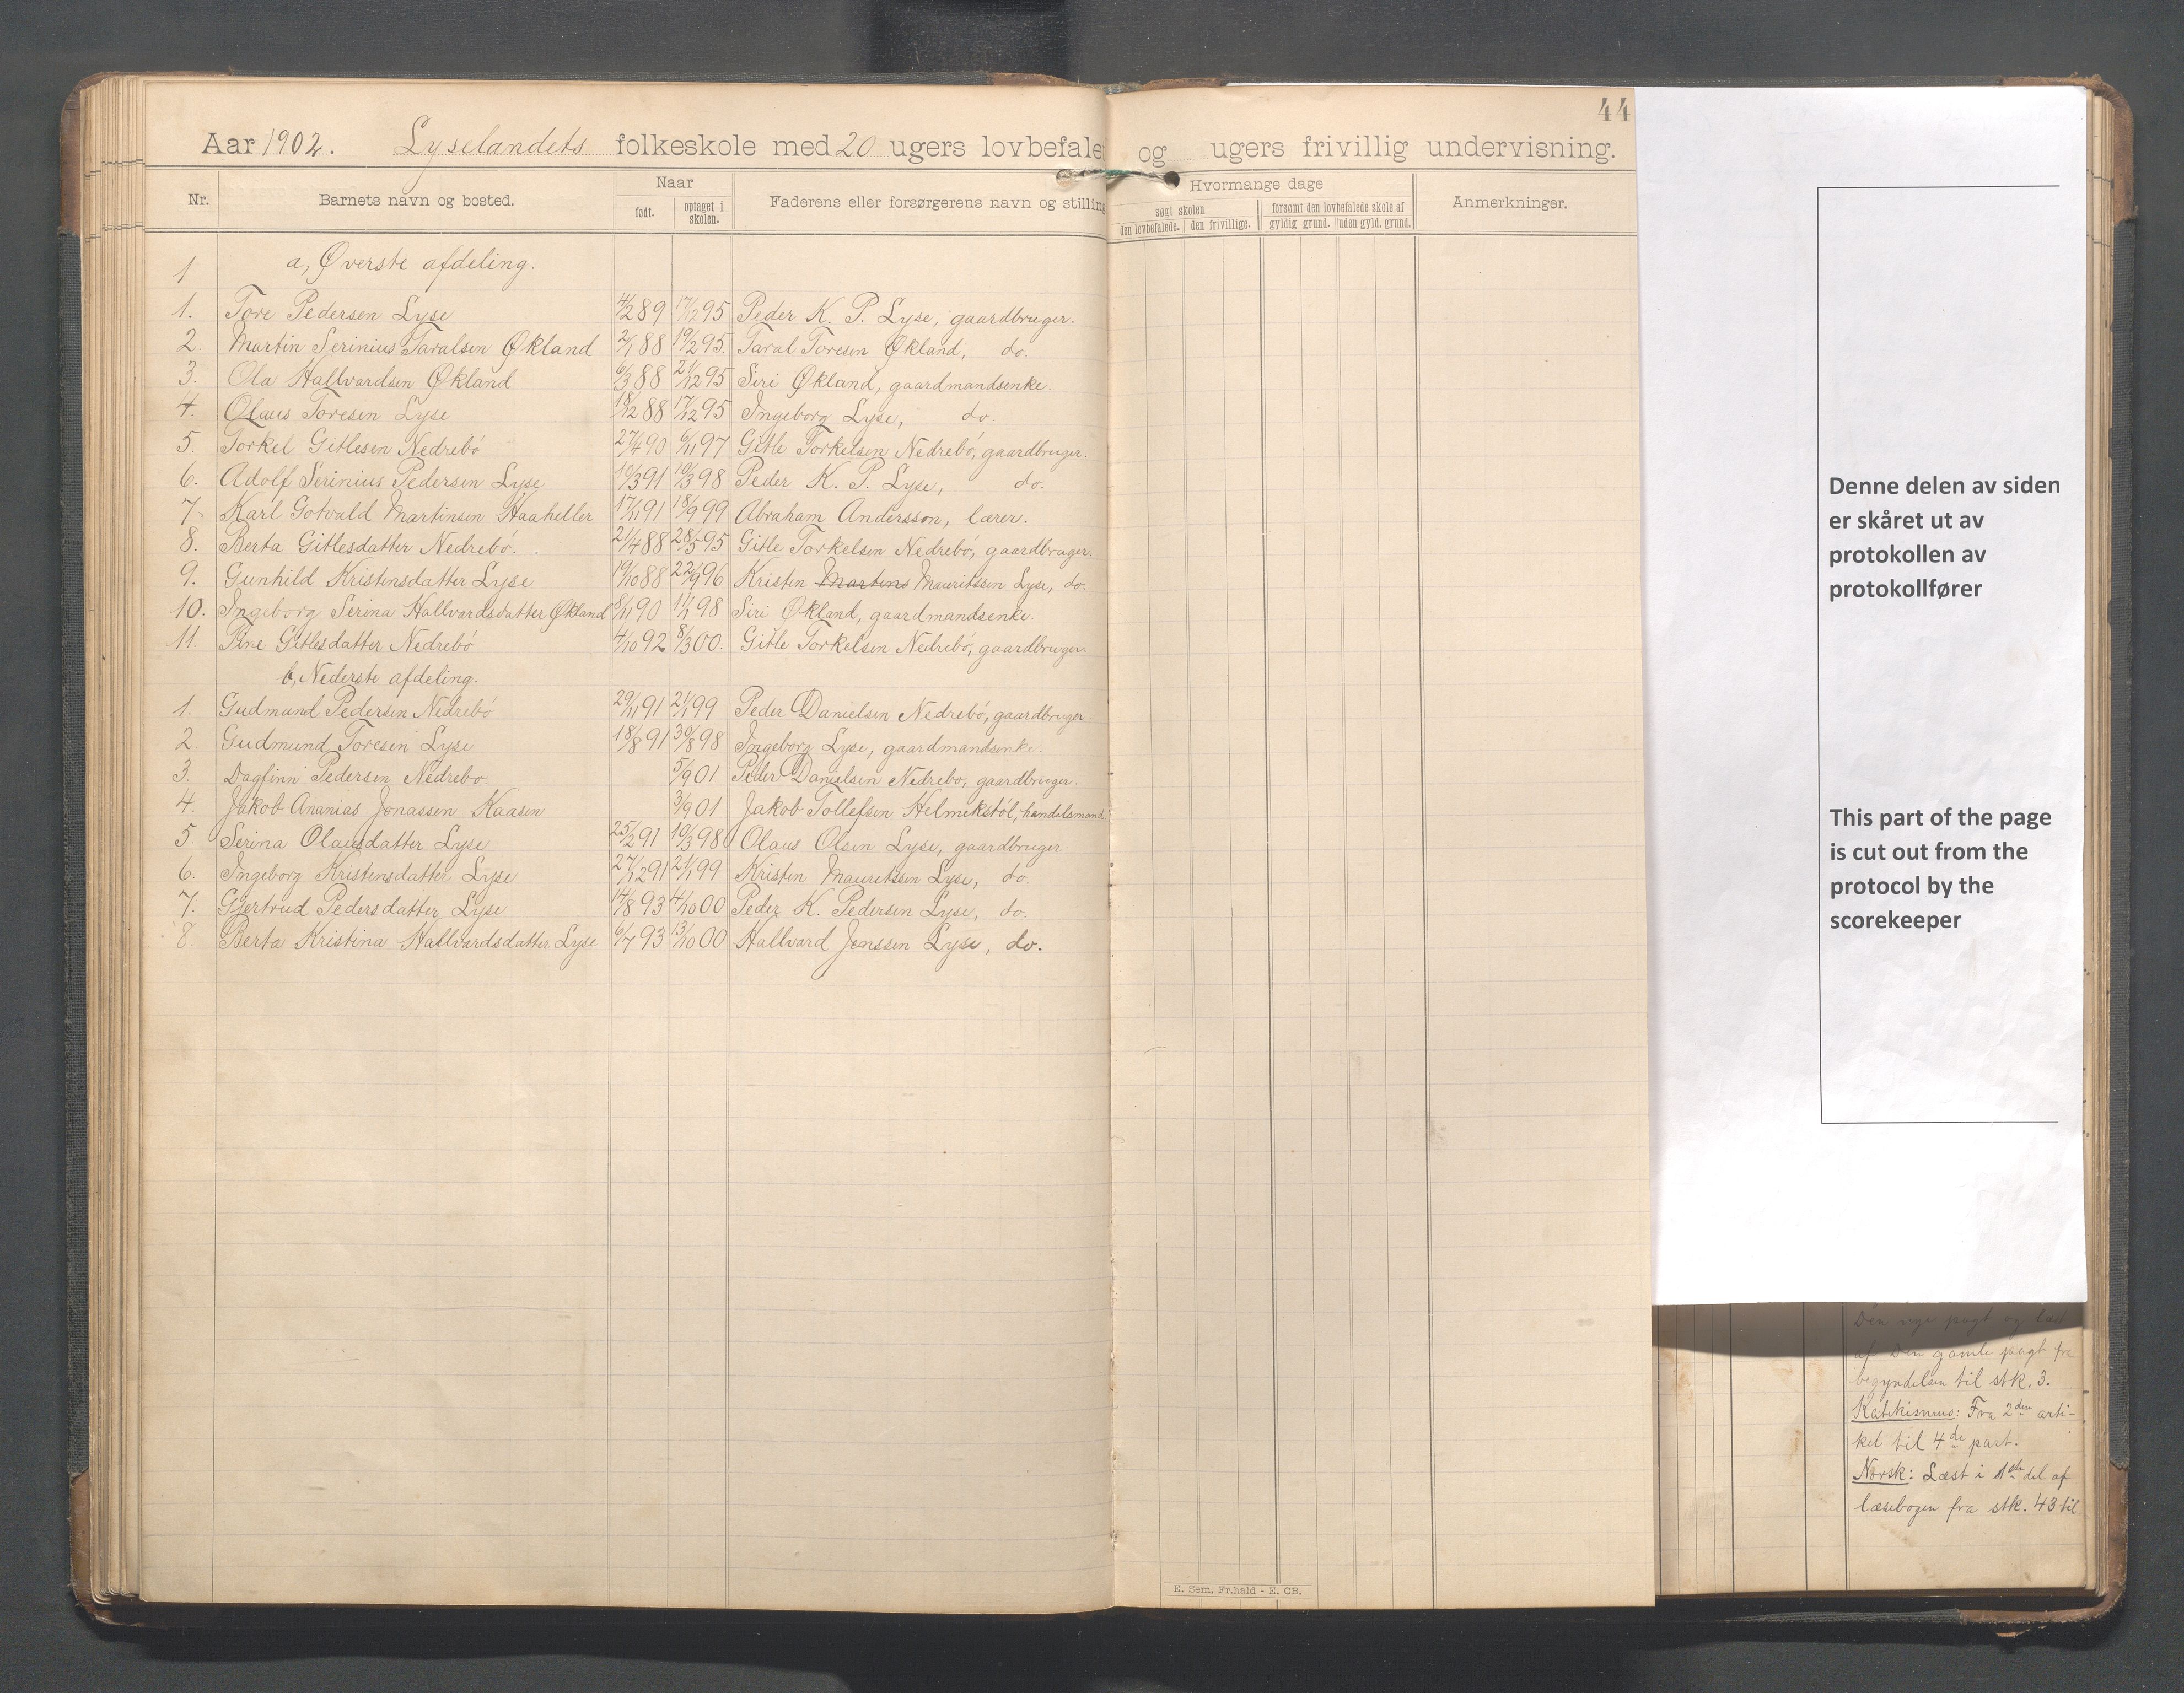 44
Aar 1902. Lyselandets folkeskole med 20 ugers lovbefale og ugers frivillig undervisning.
Nr. Barnets navn og bosted. Naar født. optaget i skolen. Faderens eller forsørgerens navn og stilling Hvormange dage søgt skolen den lovbefalede. den frivillige. forsømt den lovbefalede skole af gyldig grund. uden gyld. grund. Anmerkninger.
1 a, Øverste afdeling.
1. Tore Pedersen Lyse 4/2 89 17/12 95 Peder K. P. Lyse, gaardbruger.
2. Martin Serinius Taralsen Økland 2/1 88 19/2 95. Taral Toresen Økland, do.
3. Ola Hallvardsen Økland 6/3 88 2/12 95 Siri Økland, gaardmandsenke.
4. Olaus Toresen Lyse 18/12 88 17/12 95 Ingeborg Lyse, do.
5. Torkel Gitlesen Nedrebö 27/4 90 6/11 97 Gitle Torkelsen Nedrebö, gaardbruger.
6. Adolf Serinius Pedersen Lyse 10/3 91 10/3 98 Peder K. P. Lyse, do.
7. Karl Gotvald Martinsen Haaheller 17/11 91 18/9 99 Abraham Andersson, lærer.
8. Berta Gitlesdatter Nedrebö. 21/4 88 28/5 95 Gitle Torkelsen Nedrebö, gaardbruger.
9. Gunhild Kristensdatter Lyse 19/10 88 22/9 96 Kristen Martens Mauritssen Lyse, do.
10. Ingeborg Serina Hallvardsdatter Økland 8/11 90 1/1 98 Siri Økland, gaardmandsenke.
11. Pine Gitlesdatter Nedrebö 4/10 92 8/3 00. Gitle Torkelsen Nedrebö, gaardbruger.
b, Nederste afdeling.
1. Gudmund Pedersen Nedrebö 29/11 91 21/1 99 Peder Danielsen Nedrebö, gaardbruger.
2. Gudmund Toresen Lyse 18/8 91 30/8 98 Ingeborg Lyse, gaardmandsenke.
3. Dagfinn Pedersen Nedrebo. 5/9 01 Peder Danielsen Nedrebo, gaardbruger.
4. Jakob Ananias Jonassen Kaasen 3/9 01 Jakob Tollefsen Helmekstöl, handelsmand
5. Serina Olausdatter Lyse 25/2 91 10/3 98 Olaus Olsen Lyse, gaardbruger
6. Ingeborg Kristensdatter Lyse 27/12 91 21/1 99 Kristen Mauritssen Lyse, do.
7. Gjertrud Pedersdatter Lyse 14/8 93 4/10 00 Peder K. Pedersen Lyse, do.
8. Berta Kristina Hallvardsdatter Lyse 6/7 93 13/10 00 Hallvard Jonssen Lyse, do.
E. Sem, Fr.hald - E. CB.
Denne delen av siden
er skåret ut av
protokollen av
protokollfører
This part of the page
is cut out from the
protocol by the
scorekeeper
Den nye pagt og læst
af Den gamle pagt fra
begyndelsen til stk. 3.
Katekismus: Fra 2den arti-
kel til 4de part.
Norsk: Læst i 1ste del af
læsebogen fra stk. 43 til